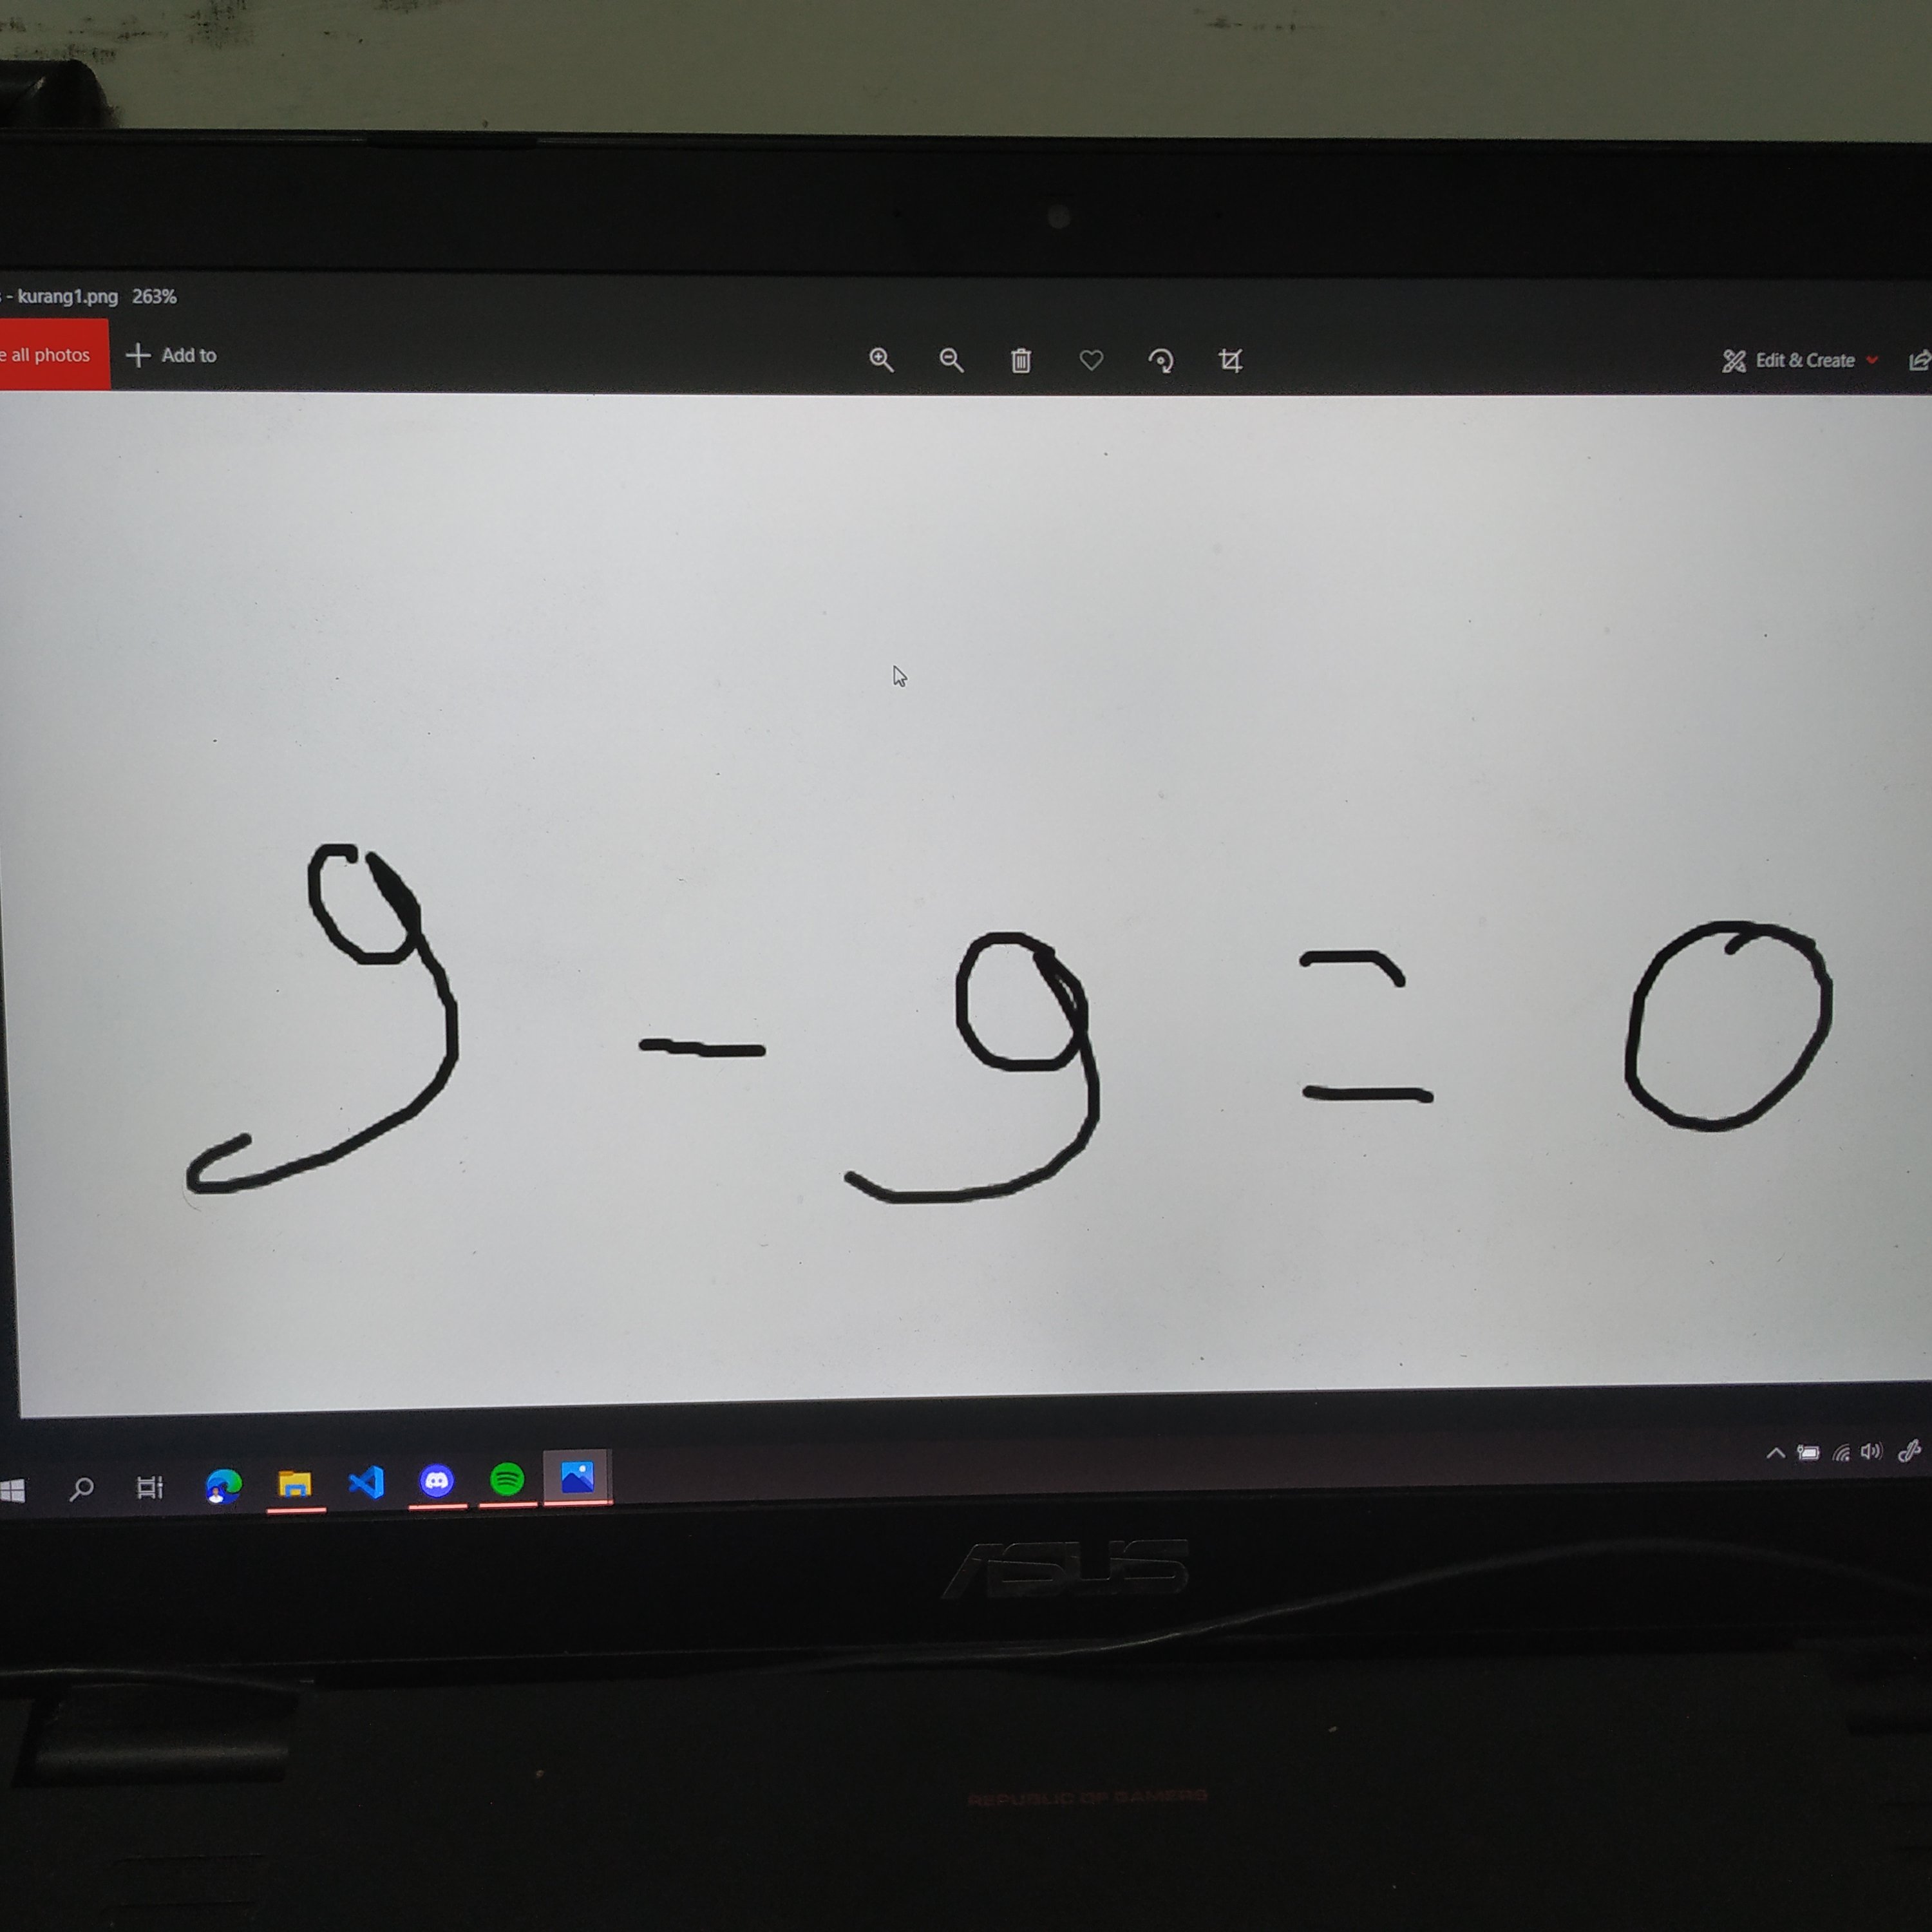 - kurang1.png 263%
all photos
Add to
Edit & Create
9 - 9 = 0
ASUS
REPUBLIC OF GAMERS